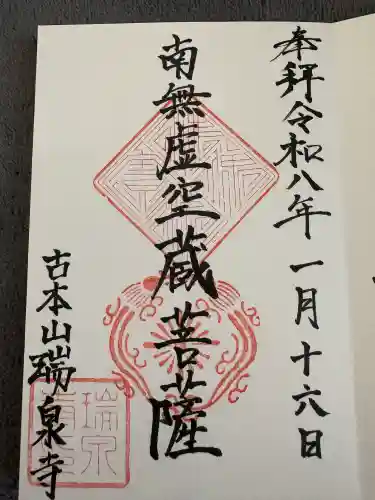 奉拝令和八年一月十六日
南無虚空蔵菩薩
古本山瑞泉寺
瑞泉